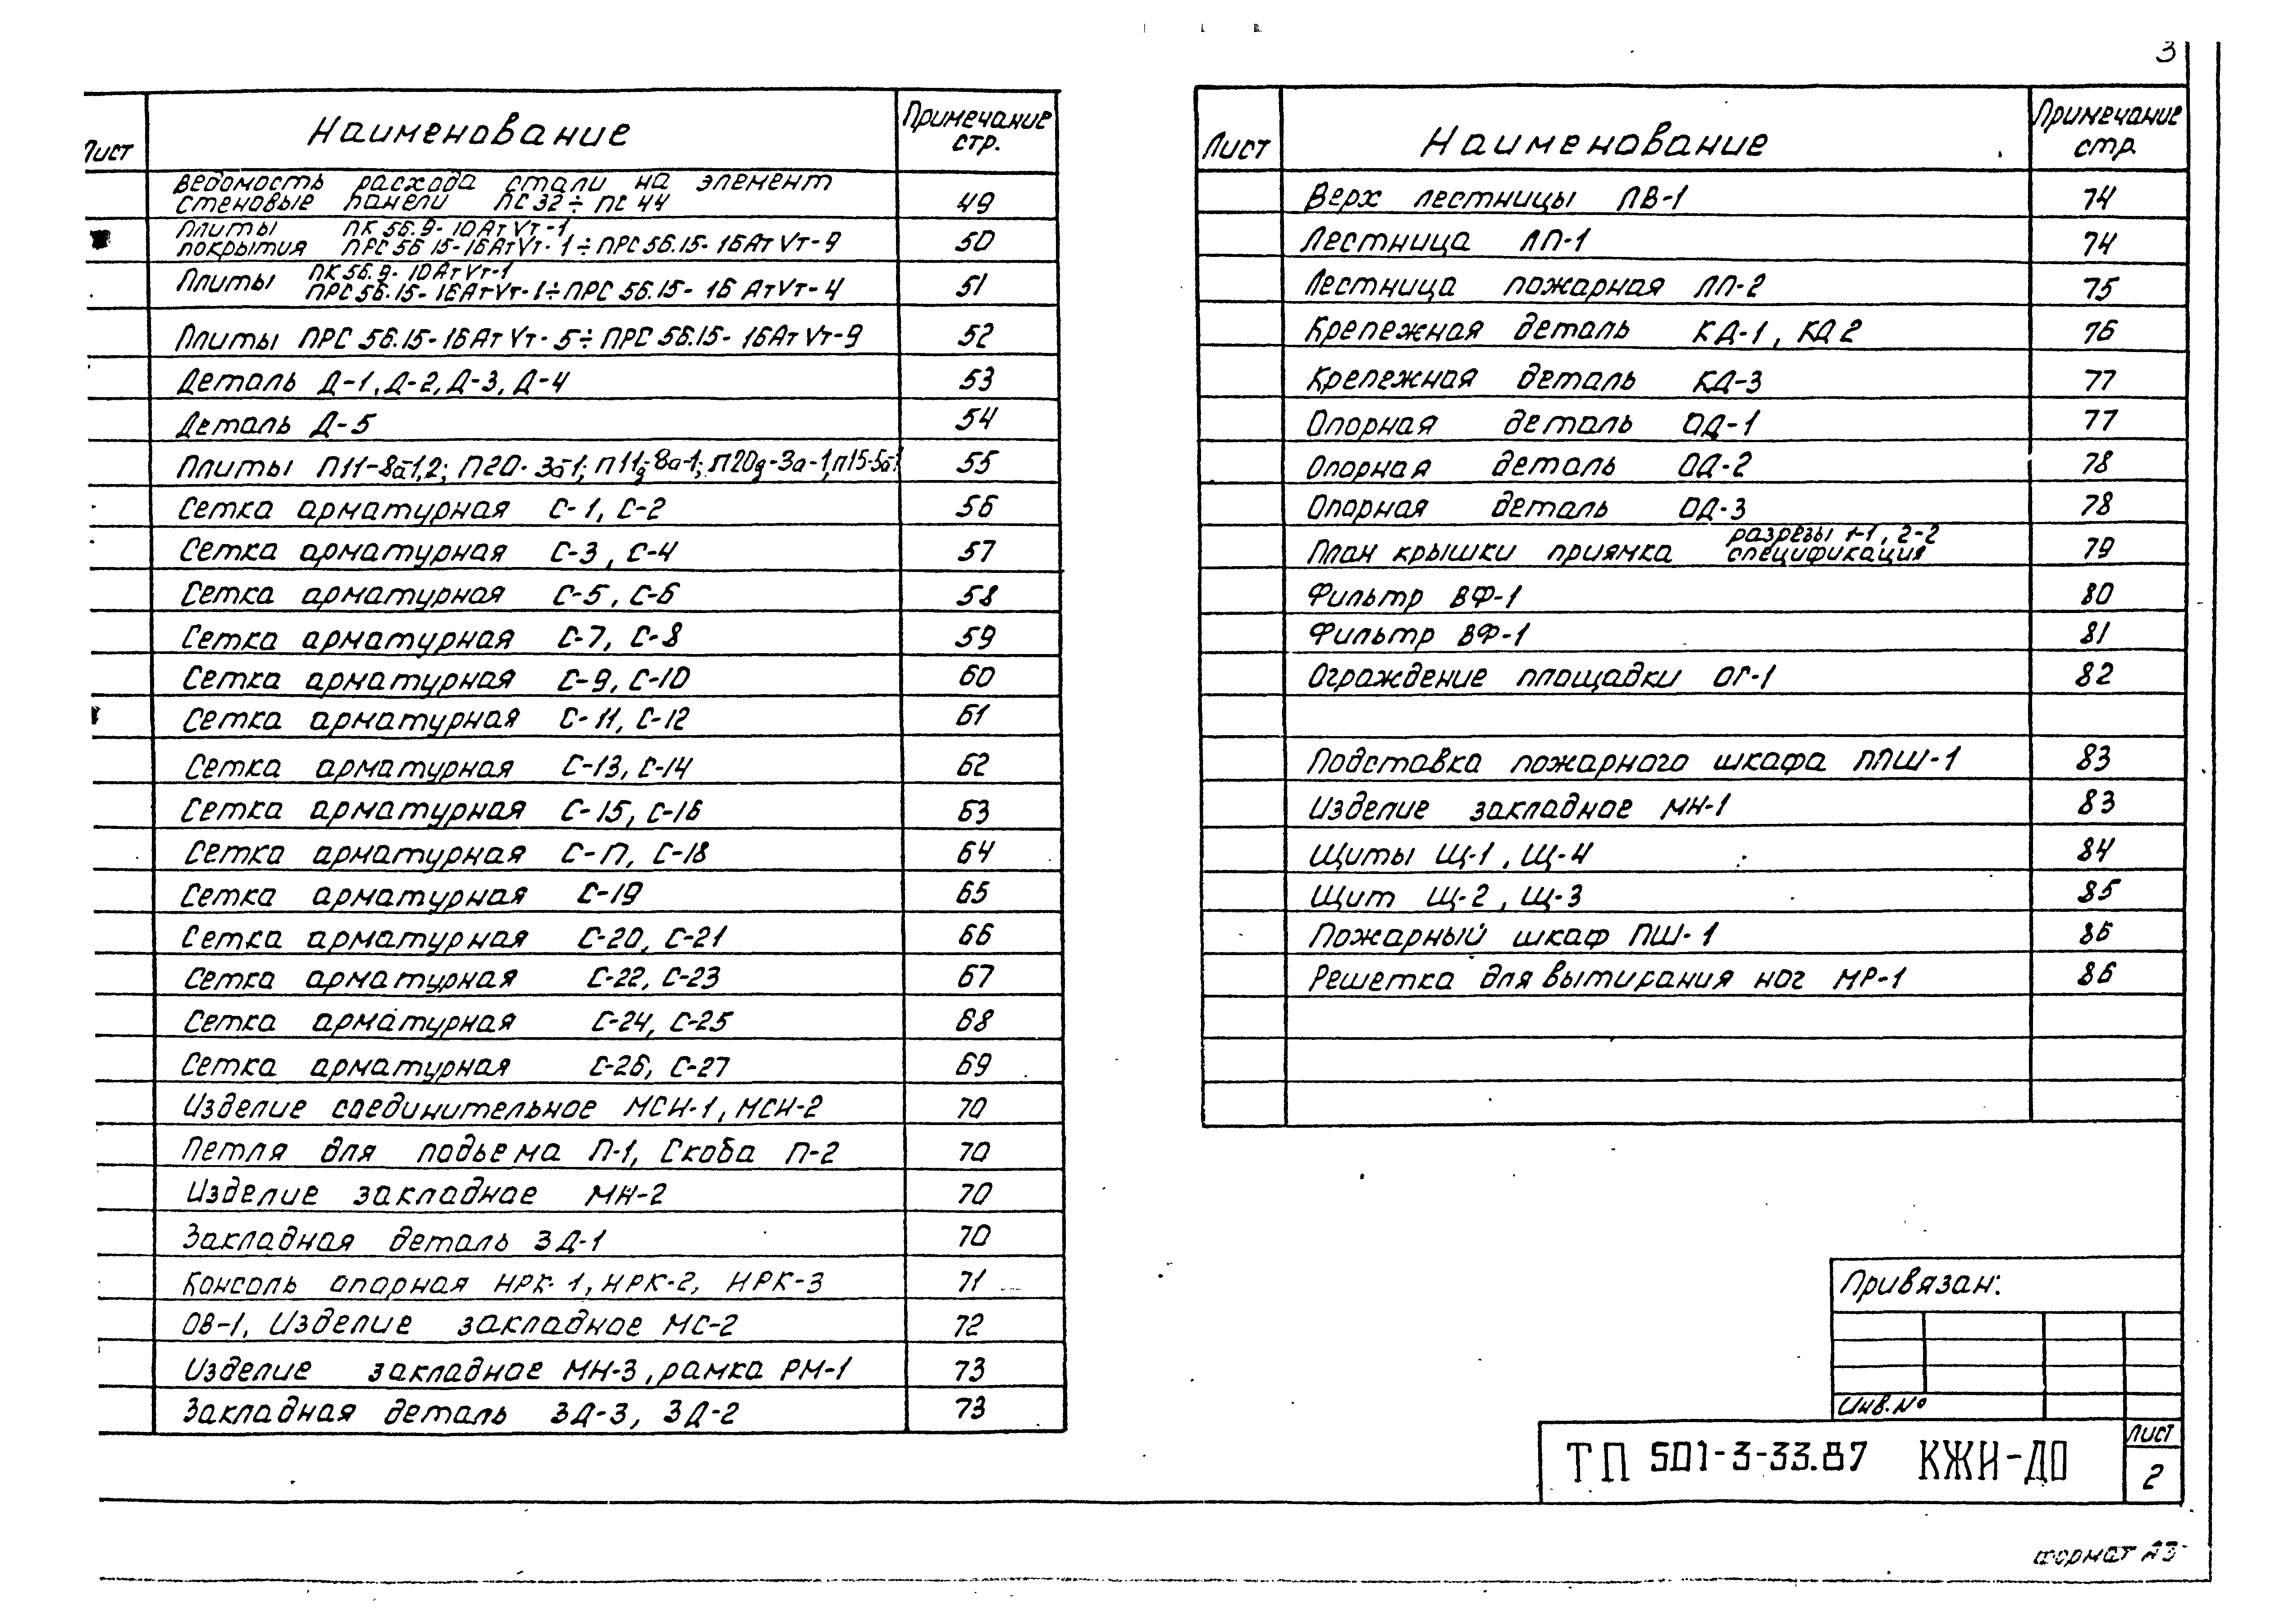 3
Лист Наименование Примечание стр.
Ведомость расхода стали на элемент
стеновые панели ПС 32÷ПС 44 49
Плиты ПК 56.9-10АтVт-1
покрытия ПРС 56.15-16АтVт-1÷ПРС 56.15-16АтVт-9 50
Плиты ПК 56.9-10АтVт-1
ПРС 56.15-16АтVт-1÷ПРС 56.15-16АтVт-4 51
Плиты ПРС 56.15-16АтVт-5÷ПРС 56.15-16АтVт-9 52
Деталь Д-1, Д-2, Д-3, Д-4 53
Деталь Д-5 54
Плиты П11-8а-1,2; П20-3а-1; П11д-8а-1; П20д-3а-1, П15-5а-1 55
Сетка арматурная С-1, С-2 56
Сетка арматурная С-3, С-4 57
Сетка арматурная С-5, С-6 58
Сетка арматурная С-7, С-8 59
Сетка арматурная С-9, С-10 60
Сетка арматурная С-11, С-12 61
Сетка арматурная С-13, С-14 62
Сетка арматурная С-15, С-16 63
Сетка арматурная С-17, С-18 64
Сетка арматурная С-19 65
Сетка арматурная С-20, С-21 66
Сетка арматурная С-22, С-23 67
Сетка арматурная С-24, С-25 68
Сетка арматурная С-26, С-27 69
Изделие соединительное МСН-1, МСН-2 70
Петля для подьема П-1, Скоба П-2 70
Изделие закладное МН-2 70
Закладная деталь ЗД-1 70
Консоль опорная НРК-1, НРК-2, НРК-3 71
ОВ-1, Изделие закладное МС-2 72
Изделие закладное МН-3, рамка РМ-1 73
Закладная деталь ЗД-3, ЗД-2 73
Лист Наименование Примечание стр.
Верх лестницы ЛВ-1 74
Лестница ЛП-1 74
Лестница пожарная ЛП-2 75
Крепежная деталь КД-1, КД 2 76
Крепежная деталь КД-3 77
Опорная деталь ОД-1 77
Опорная деталь ОД-2 78
Опорная деталь ОД-3 78
План крышки приямка разрезы 1-1, 2-2
спецификация 79
Фильтр ВФ-1 80
Фильтр ВФ-1 81
Ограждение площадки ОГ-1 82
Подставка пожарного шкафа ППШ-1 83
Изделие закладное МН-1 83
Щиты Щ-1, Щ-4 84
Щит Щ-2, Щ-3 85
Пожарный шкаф ПШ-1 86
Решетка для вытирания ног МР-1 86
Привязан:
Инв.№
ТП 501-3-33.87 КЖИ-ДО
Лист
2
формат А3